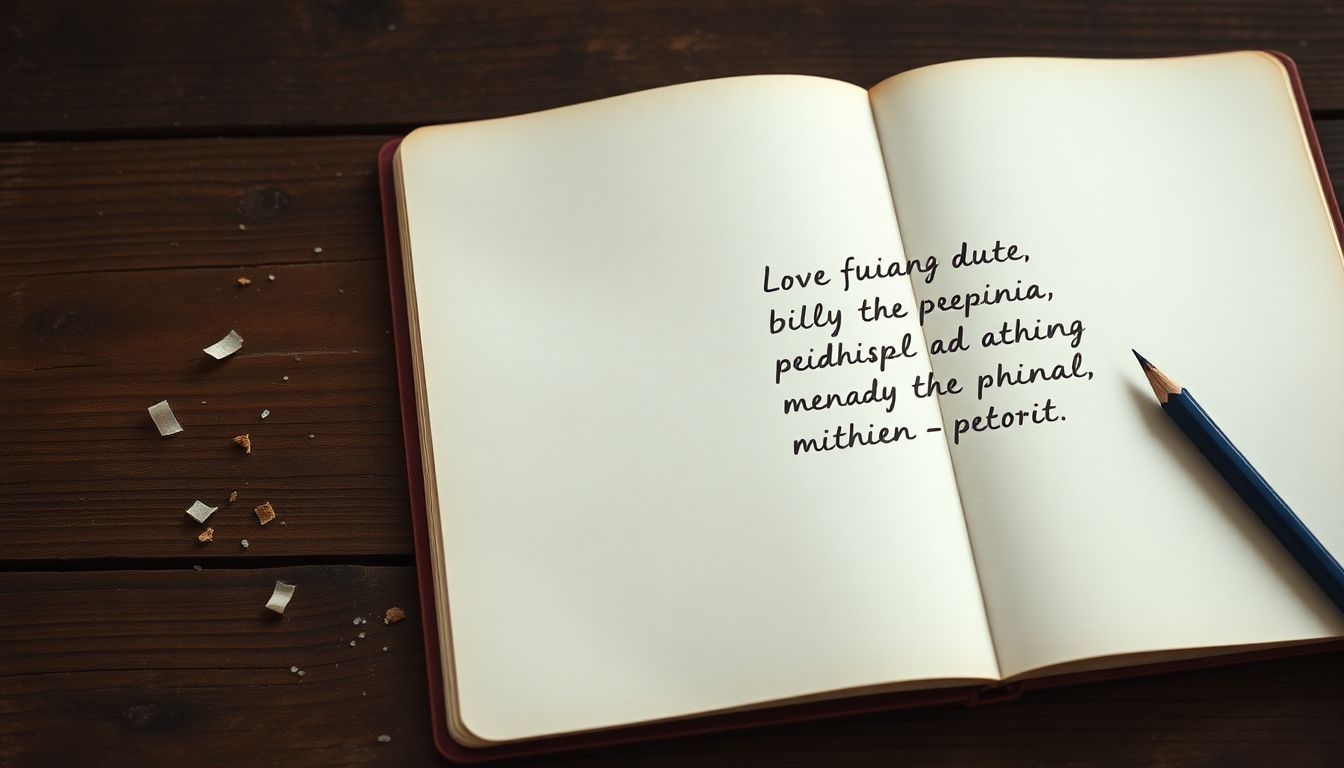 Love fuiang dute,
billy the peepinia,
peidhispl ad athing
menady the phinal,
mithien – petorit.